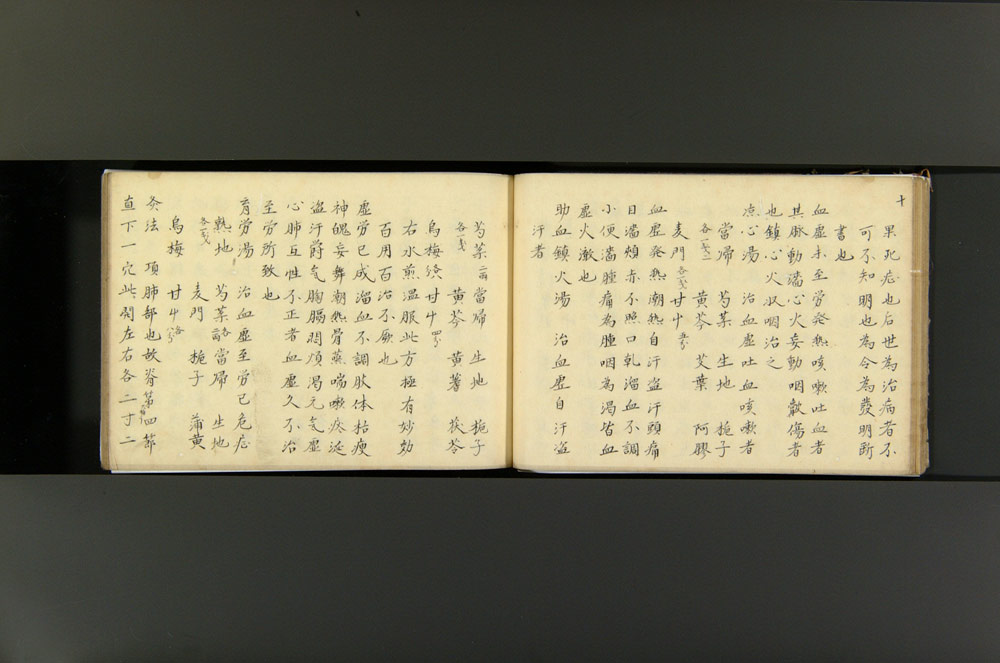 十
果死症也后世為治病者不
可不知明也為令為發明断
書也
血虚未至労発熱咳嗽吐血者
其脉動濇心火妄動咽散傷者
也鎮心火収咽治之
涼心湯 治血虚吐血咳嗽者
當帰 芍薬 生地 梔子
各一戔 黄芩 艾葉 阿膠
麦門 各一戔 甘艸 五分
血虚発熱潮熱自汗盗汗頭痛
目濇頬赤不照口乾溜血不調
小便濇腫痛為腫咽為渇皆血
虚火激也
助血鎮火湯 治血虚自汗盗
汗者
芍薬 當帰 生地 梔子
各一戔 黄芩 黄蓍 茯苓
烏梅 甘艸 四分
右水煎温服此方極有妙効
百用百治不厥也
虚労已成溜血不調肤体枯瘦
神魄妄舞潮熱骨蒸喘嗽痰涎
盗汗欝氣胸膈悶煩渇元氣虚
心肺互性不正者血虚久不治
至労所致也
育労湯 治血虚至労已危症
熟地 芍薬 當帰 生地
各一戔 麦門 梔子 蒲黄
烏梅 甘艸
灸法 項肺部也故脊第四節
直下一穴此間左右各二寸二